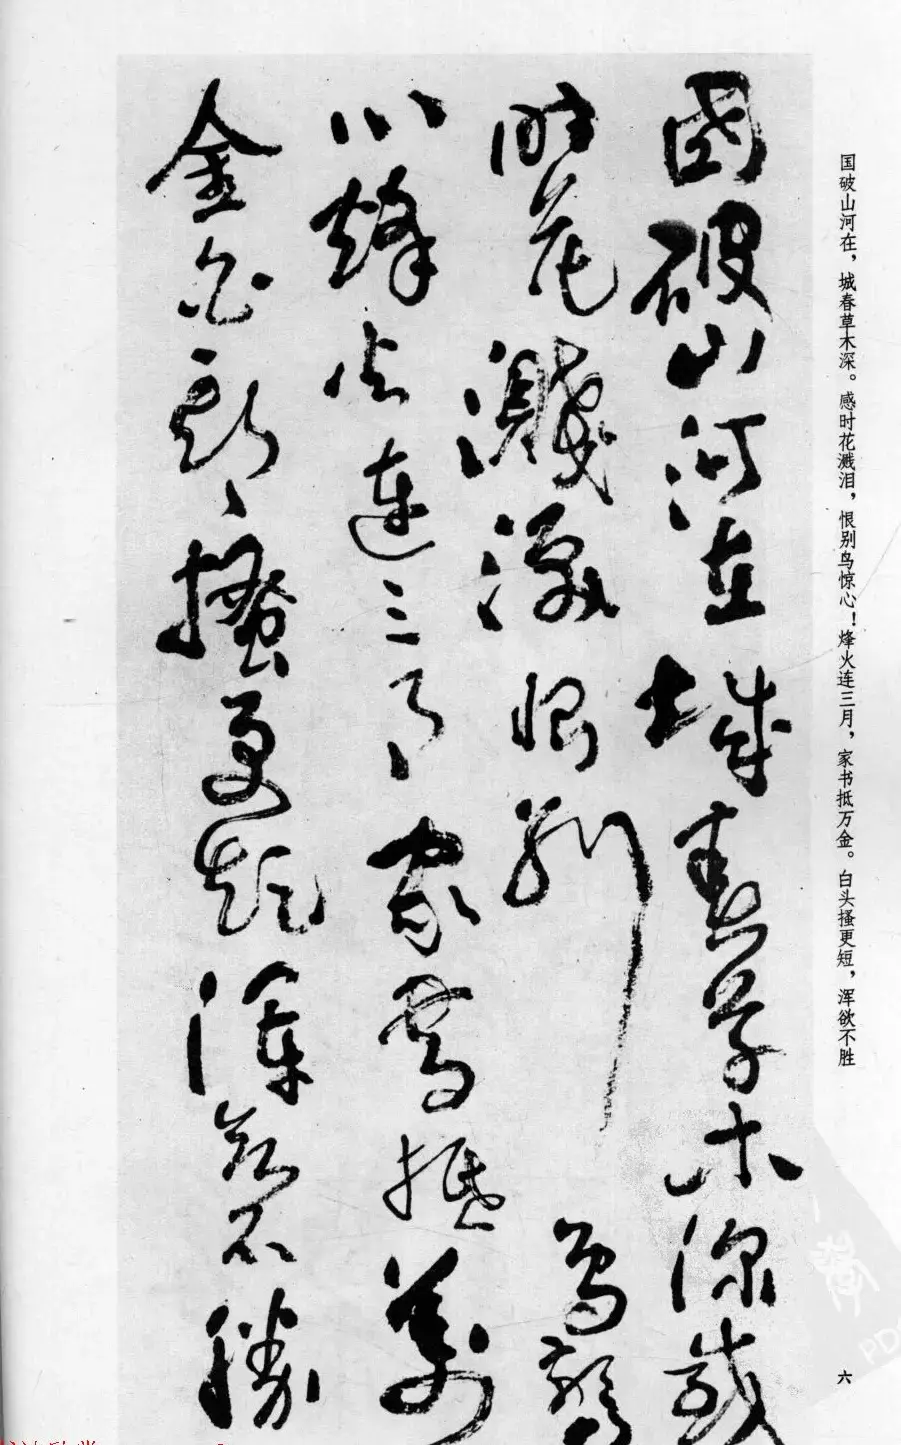 国破山河在，城春草木深。感时花溅泪，恨别鸟惊心！烽火连三月，家书抵万金。白头搔更短，浑欲不胜
國破山河在城春草木深感
時花濺淚恨別鳥驚
心烽火連三月家書抵萬
金白頭搔更短渾欲不勝
六